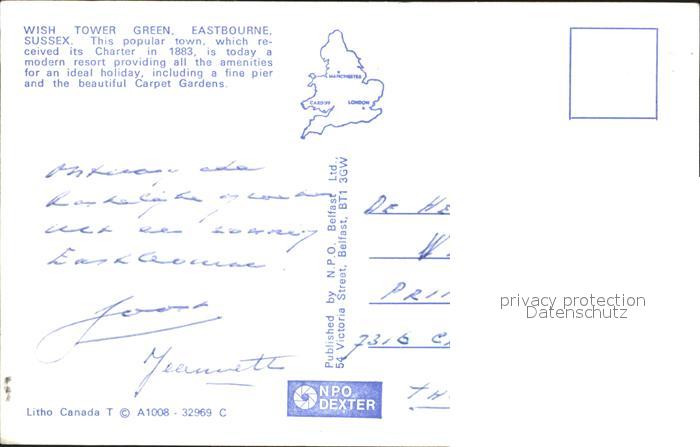 WISH TOWER GREEN, EASTBOURNE,
SUSSEX. This popular town, which re-
ceived its Charter in 1883, is today a
modern resort providing all the amenities
for an ideal holiday, including a fine pier
and the beautiful Carpet Gardens.
MANCHESTER
CARDIFF LONDON
Ontvang de
hartelijke groeten
uit een zonnig
Eastbourne.
Joost
Jeannette
Published by N.P.O. Belfast Ltd.,
54 Victoria Street, Belfast, BT1 3GW
DE HE
W
PRI
7316 C
TH
privacy protection
Datenschutz
NPO
DEXTER
Litho Canada T © A1008 - 32969 C